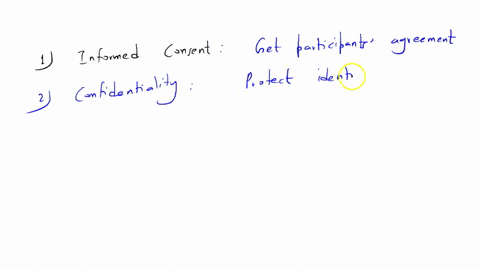 1) Informed Consent : Get participants' agreement
2) Confidentiality : Protect identi